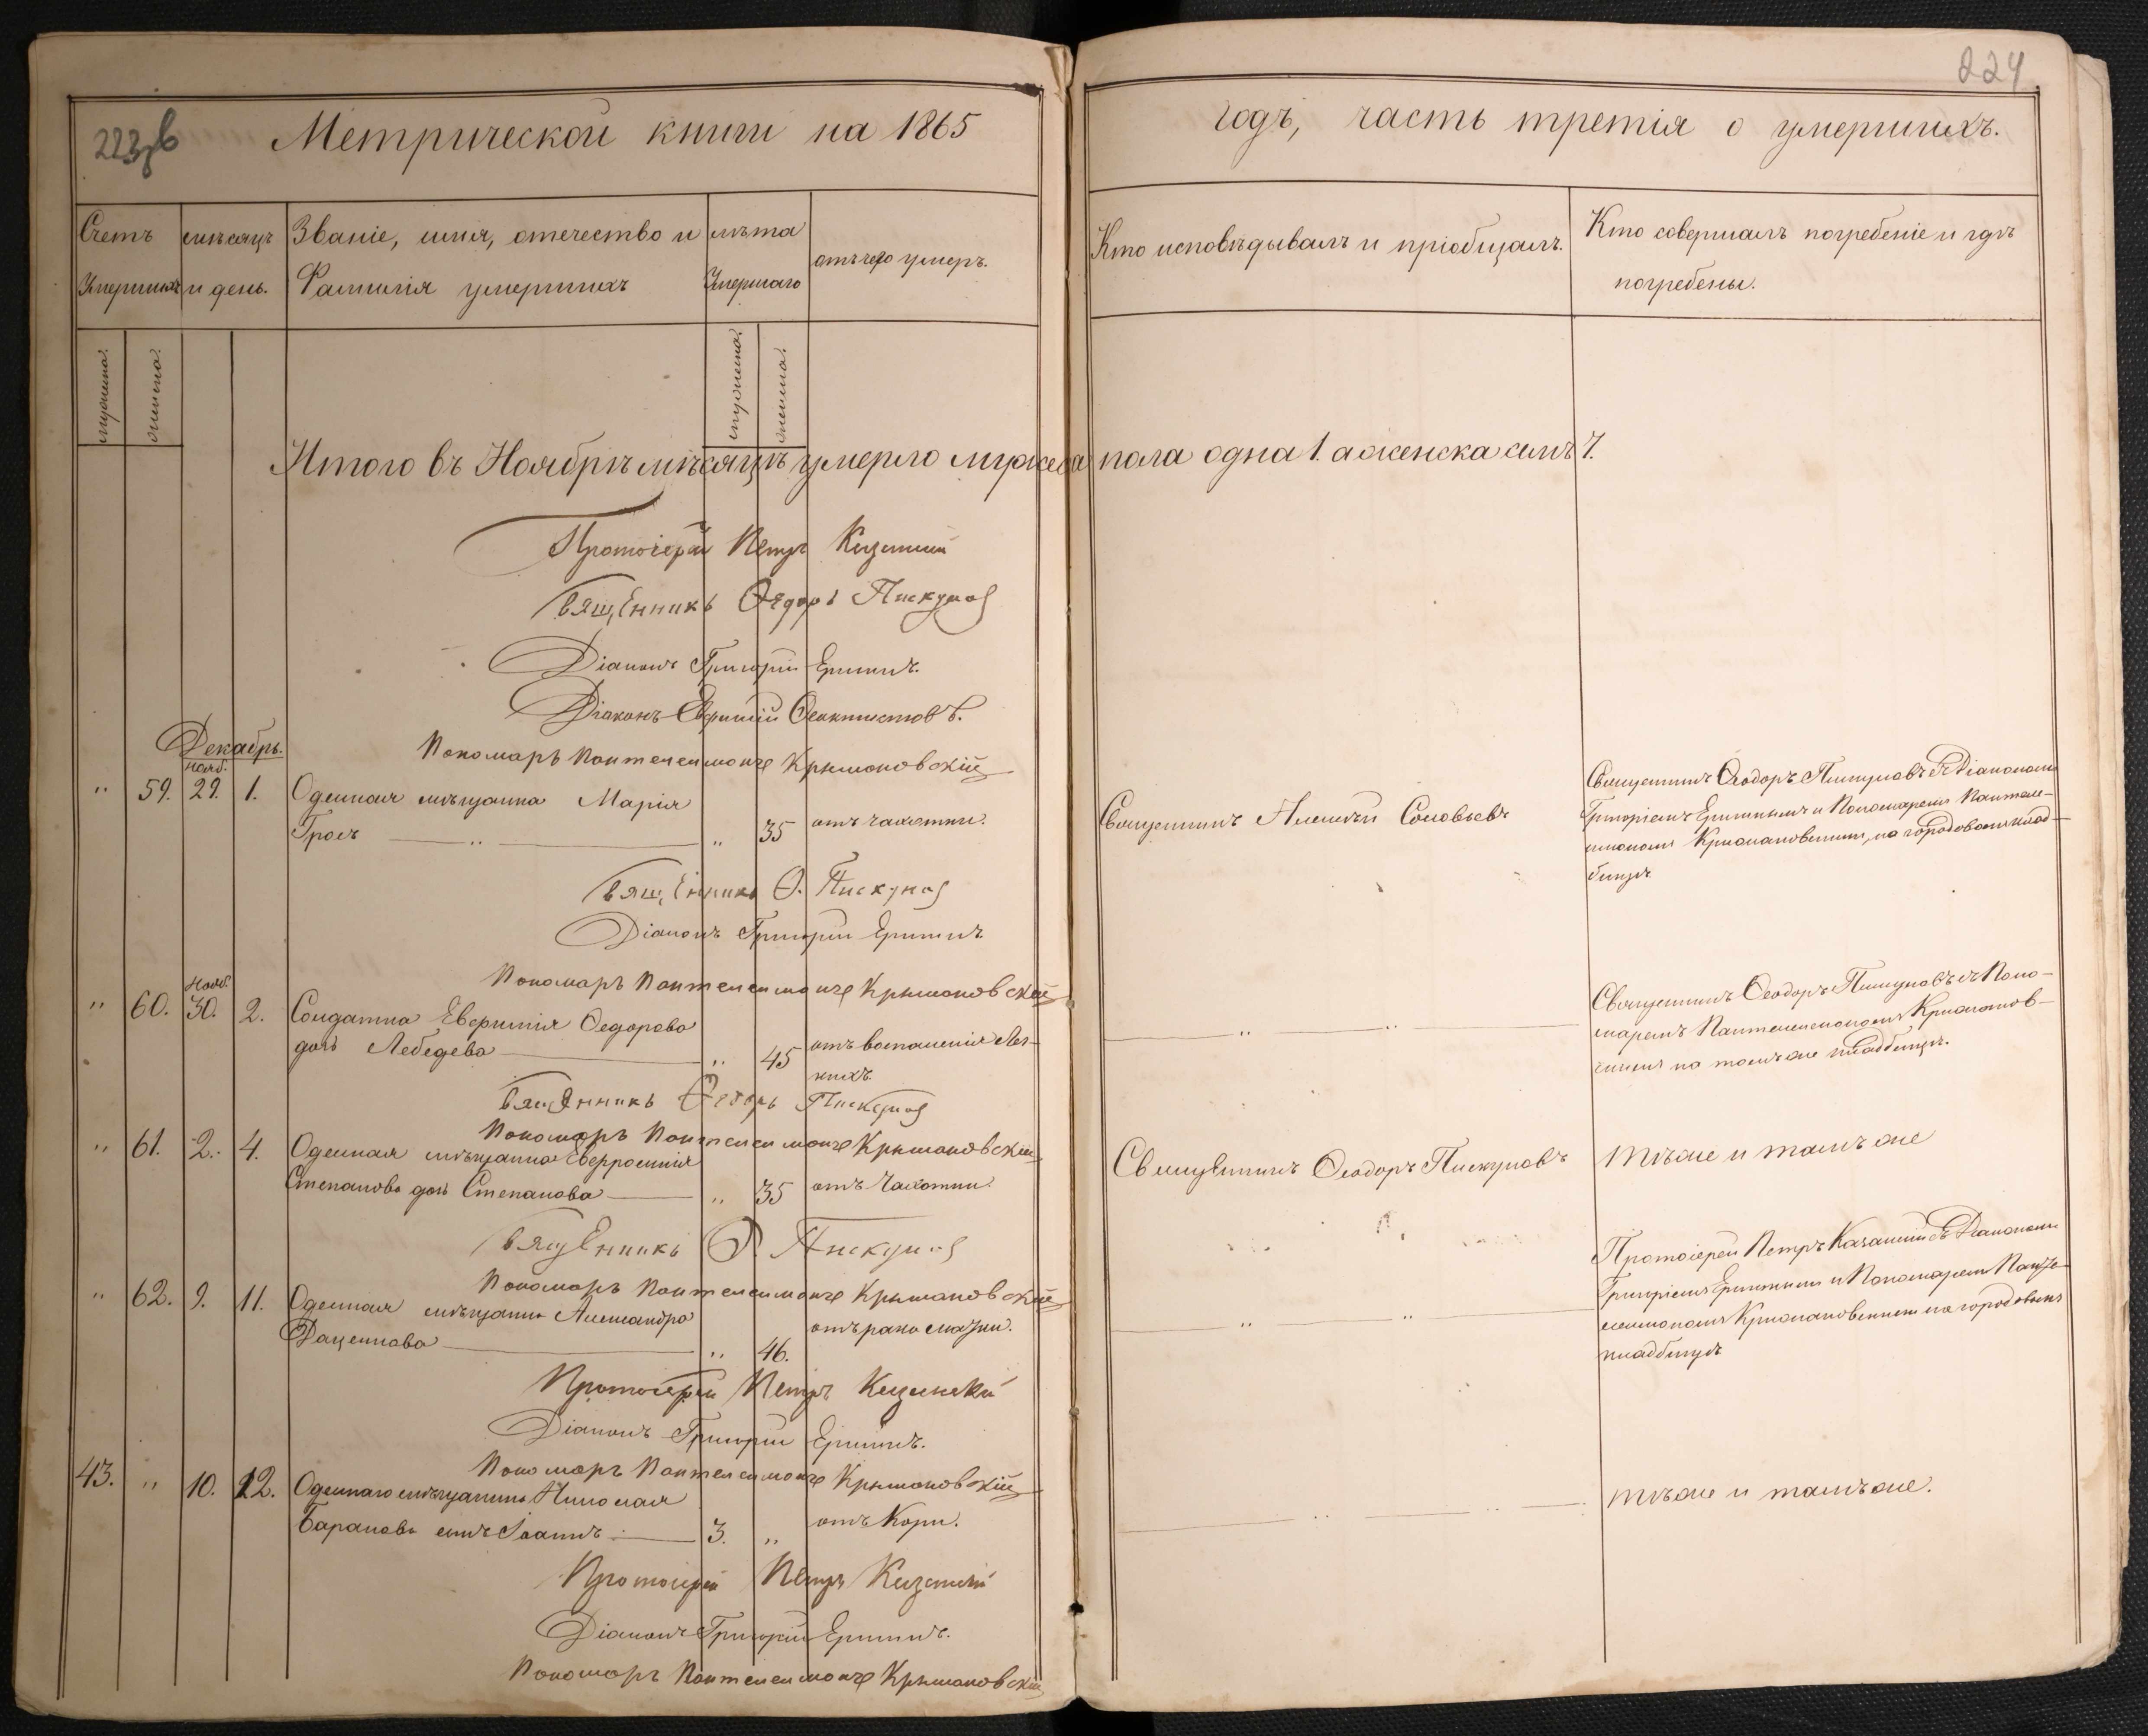 224
223об
Метрической книги на 1865
годъ, часть третія о умершихъ.
Счетъ умершихъ
мѣсяцъ и день.
Званіе, имя, отечество и
Фамилія умершихъ
лѣта
Умершаго
отъ чего умеръ.
Кто исповѣдывалъ и пріобщалъ.
Кто совершалъ погребеніе и гдѣ
погребены.
мужеска.
женска.
мужеска.
женска.
Итого въ Ноябрѣ мѣсяцѣ умерло мужеска пола одна 1. а женска семь 7.
Протоіерей Петръ Казанскій
Священникъ Ѳедоръ Пискуновъ
Діаконъ Григорій Еришинъ.
Діаконъ Евфимій Ѳеоктистовъ.
Пономарь Пантелеимонъ Крыжановскій
Декабрь.
нояб.
" 59. 29. 1. Одесская мѣщанка Марія
Гросъ " 35 отъ чахотки.
Священникъ Алексѣй Соловьевъ
Священникъ Ѳеодоръ Пискуновъ съ Діакономъ
Григоріемъ Еришинымъ и Пономаремъ Пантеле-
имономъ Крыжановскимъ, на городовомъ клад-
бищѣ
Священникъ Ѳ. Пискуновъ
Діаконъ Григорій Еришинъ
Пономарь Пантелеимонъ Крыжановскій
Нояб.
" 60. 30. 2. Солдатка Евфимія Ѳедорова
дочь Лебедева " 45 отъ воспаленія Лег-
кихъ.
Священникъ Ѳеодоръ Пискуновъ съ Поно-
маремъ Пантелеимономъ Крыжанов-
скимъ на томъ же кладбищѣ.
Священникъ Ѳедоръ Пискуновъ
Пономарь Пантелеимонъ Крыжановскій
" 61. 2. 4. Одесская мѣщанка Евфросинія
Степанова дочь Степанова " 35 отъ Чахотки.
Священникъ Ѳеодоръ Пискуновъ
тѣже и тамъ же
Священникъ Ѳ. Пискуновъ
Пономарь Пантелеимонъ Крыжановскій
" 62. 9. 11. Одесская мѣщанка Александра
Даценкова " 46. отъ рака матки.
Протоіерей Петръ Казанскій съ Діакономъ
Григоріемъ Еришинымъ и Пономаремъ Панте-
леимономъ Крыжановскимъ на городовомъ
кладбищѣ
Протоіерей Петръ Казанскій
Діаконъ Григорій Еришинъ.
Пономарь Пантелеимонъ Крыжановскій
43. " 10. 12. Одесскаго мѣщанина Николая
Баранова сынъ Іоаннъ 3. " отъ Кори.
тѣже и тамъ же.
Протоіерей Петръ Казанскій
Діаконъ Григорій Еришинъ.
Пономарь Пантелеимонъ Крыжановскій